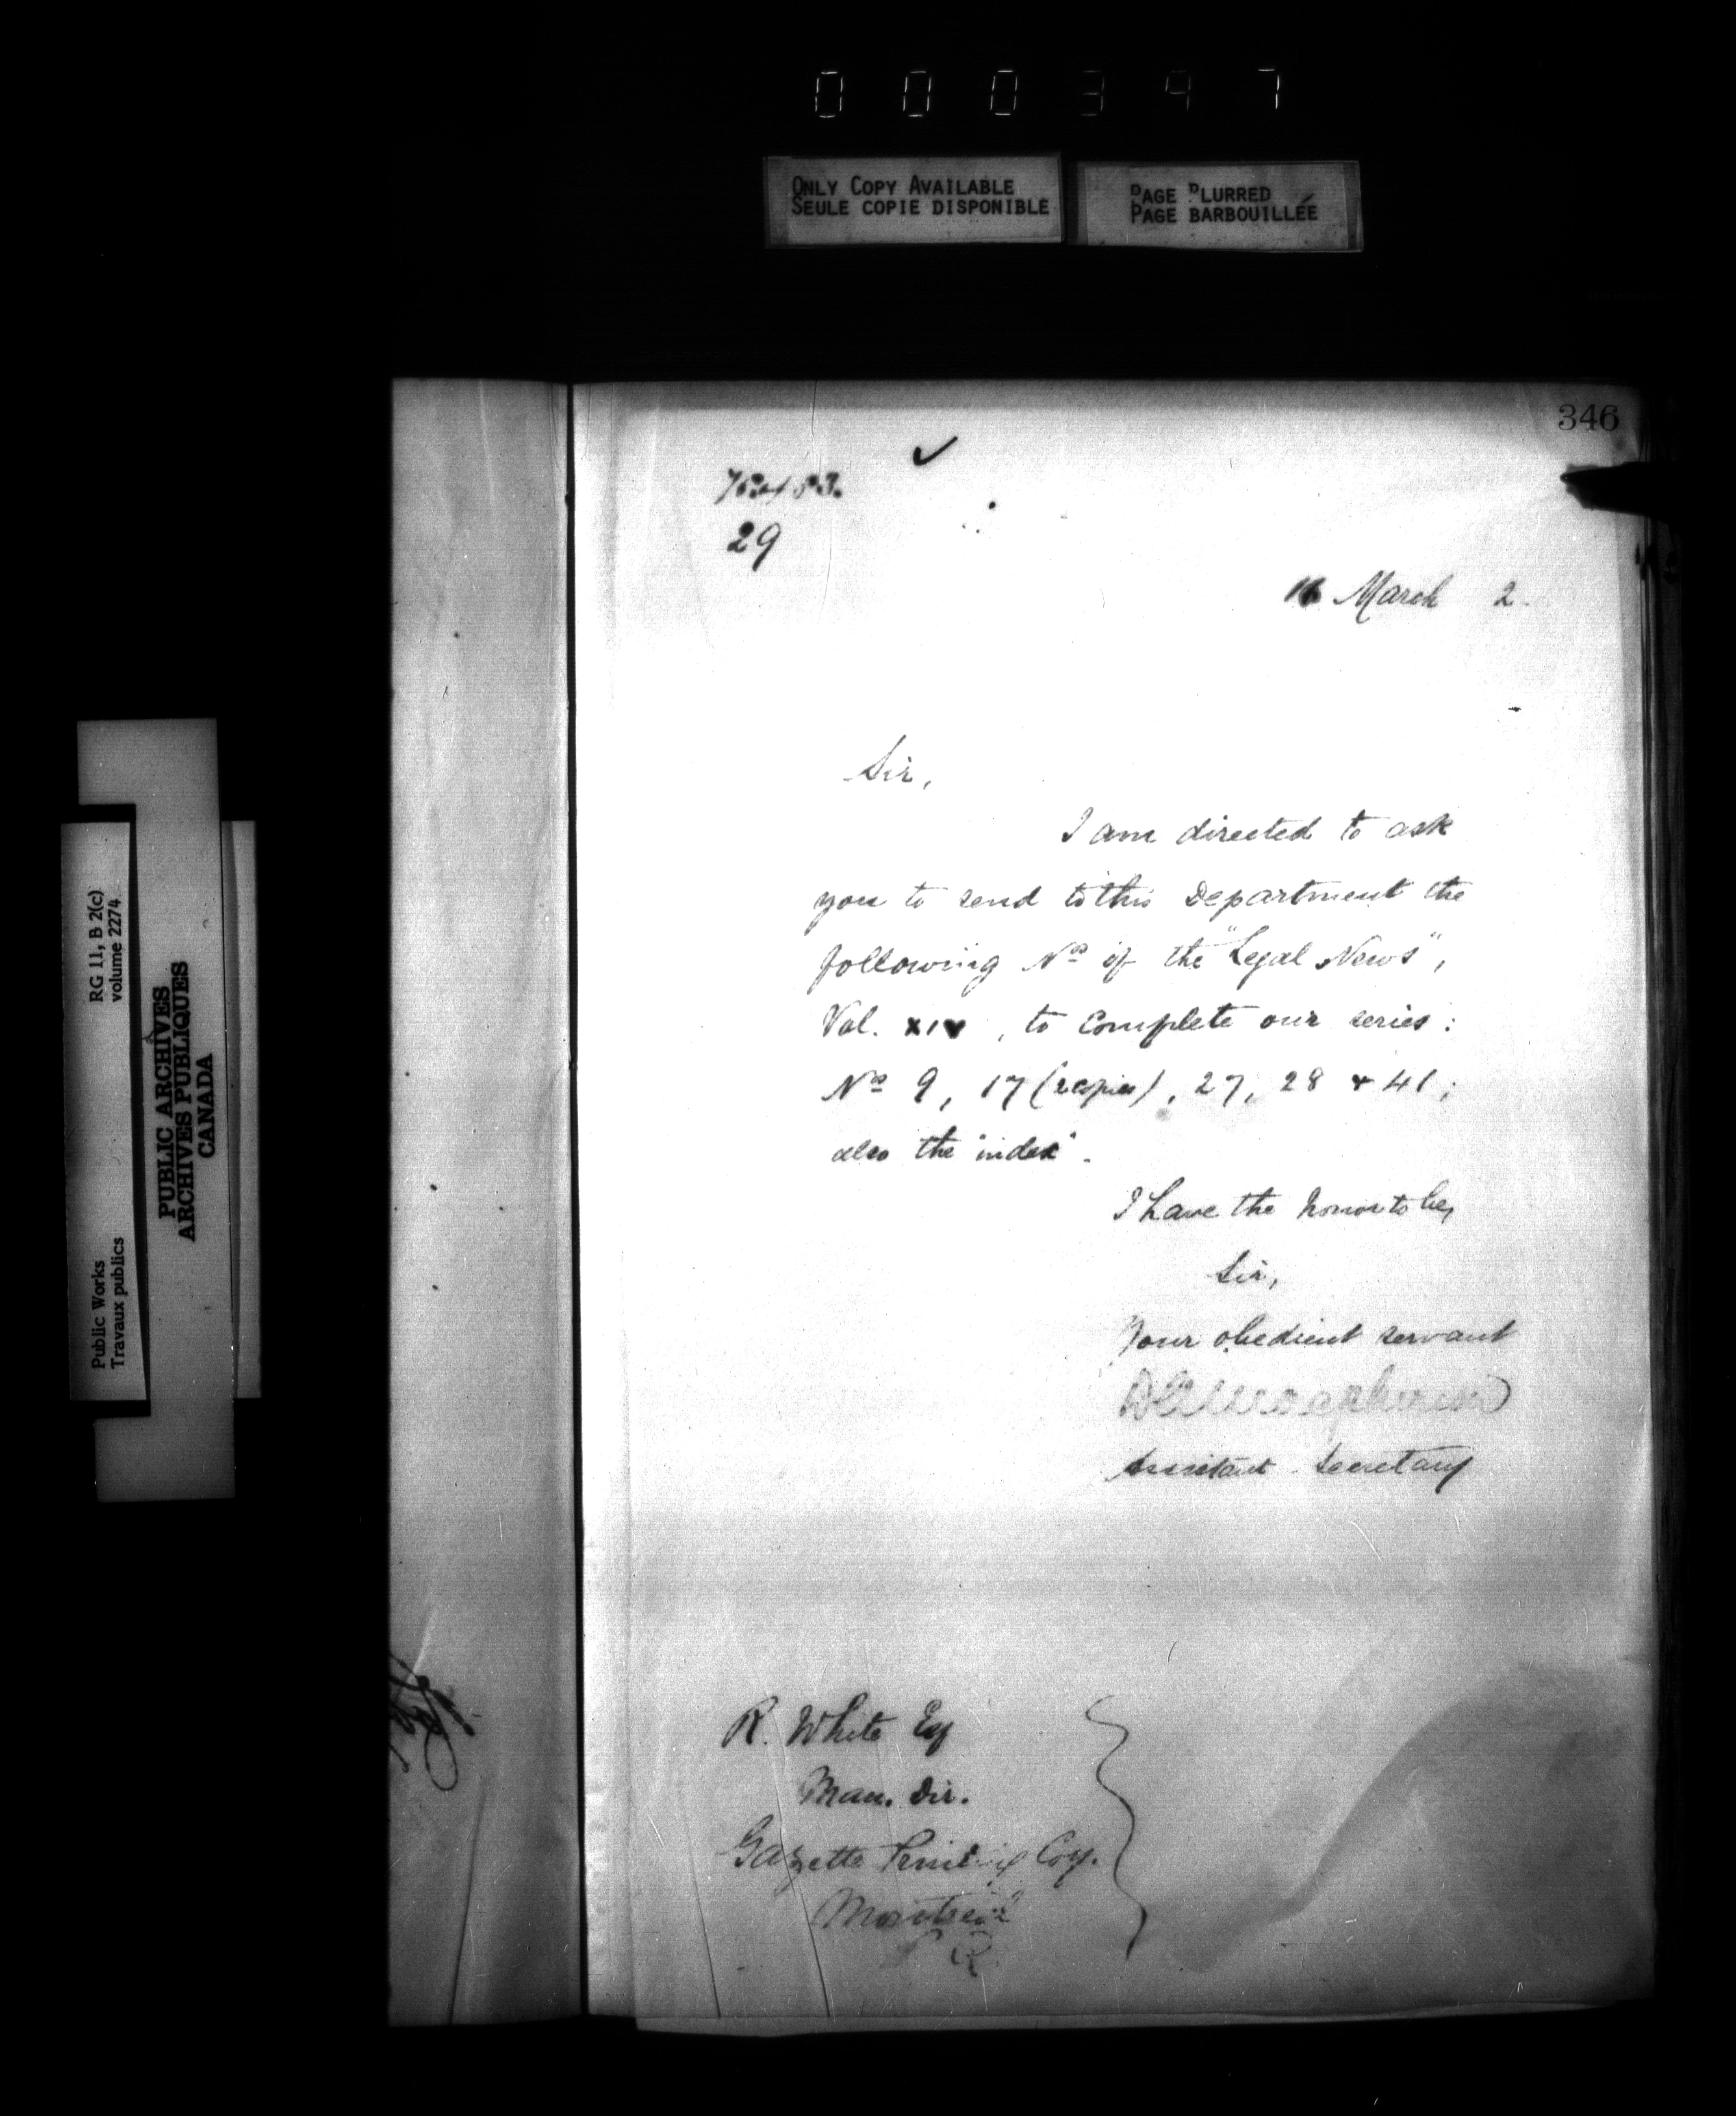 000397
ONLY COPY AVAILABLE
SEULE COPIE DISPONIBLE
PAGE BLURRED
PAGE BARBOUILLÉE
346
29
March 2
Sir,
I am directed to ask
you to send to this Department the
following Nos of the "Legal News",
Vol. XIV, to complete our series:
Nos 9, 17 (2 copies), 27, 28 & 41;
also the "index".
I have the honor to be,
Sir,
Your obedient servant
Assistant Secretary
R. White Esq
Man. Dir.
Gazette Printing Coy.
Montreal
P Q
Public Works
Travaux publics
RG 11, B 2(c)
volume 2274
PUBLIC ARCHIVES
ARCHIVES PUBLIQUES
CANADA